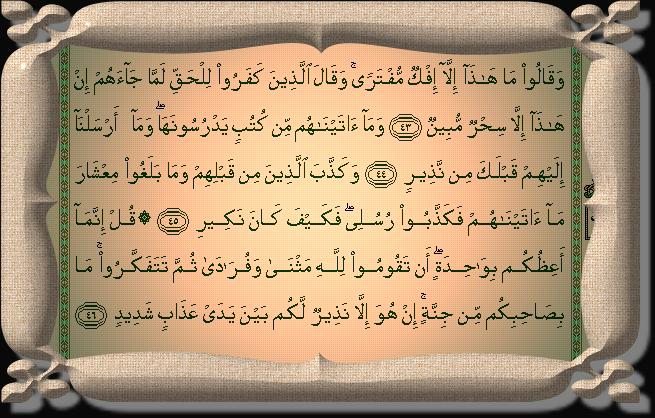 وَقَالُوا۟ مَا هَـٰذَآ إِلَّآ إِفْكٌ مُّفْتَرًى ۚ وَقَالَ ٱلَّذِينَ كَفَرُوا۟ لِلْحَقِّ لَمَّا جَآءَهُمْ إِنْ
هَـٰذَآ إِلَّا سِحْرٌ مُّبِينٌ ٤٣ وَمَآ ءَاتَيْنَـٰهُم مِّن كُتُبٍ يَدْرُسُونَهَا ۖ وَمَآ أَرْسَلْنَآ
إِلَيْهِمْ قَبْلَكَ مِن نَّذِيرٍ ٤٤ وَكَذَّبَ ٱلَّذِينَ مِن قَبْلِهِمْ وَمَا بَلَغُوا۟ مِعْشَارَ
مَآ ءَاتَيْنَـٰهُمْ فَكَذَّبُوا۟ رُسُلِى ۖ فَكَيْفَ كَانَ نَكِيرِ ٤٥ ۞ قُلْ إِنَّمَآ
أَعِظُكُم بِوَٰحِدَةٍ ۖ أَن تَقُومُوا۟ لِلَّـهِ مَثْنَىٰ وَفُرَٰدَىٰ ثُمَّ تَتَفَكَّرُوا۟ ۚ مَا
بِصَاحِبِكُم مِّن جِنَّةٍ ۚ إِنْ هُوَ إِلَّا نَذِيرٌ لَّكُم بَيْنَ يَدَىْ عَذَابٍ شَدِيدٍ ٤٦